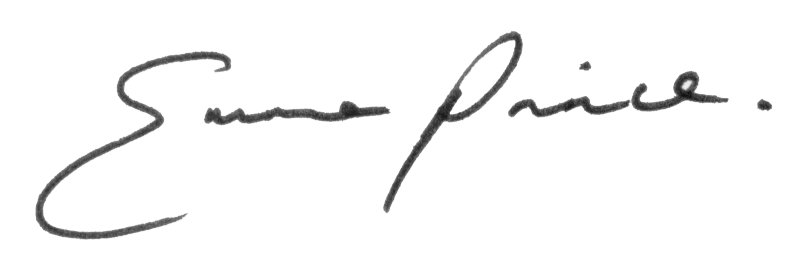 Emma Price.